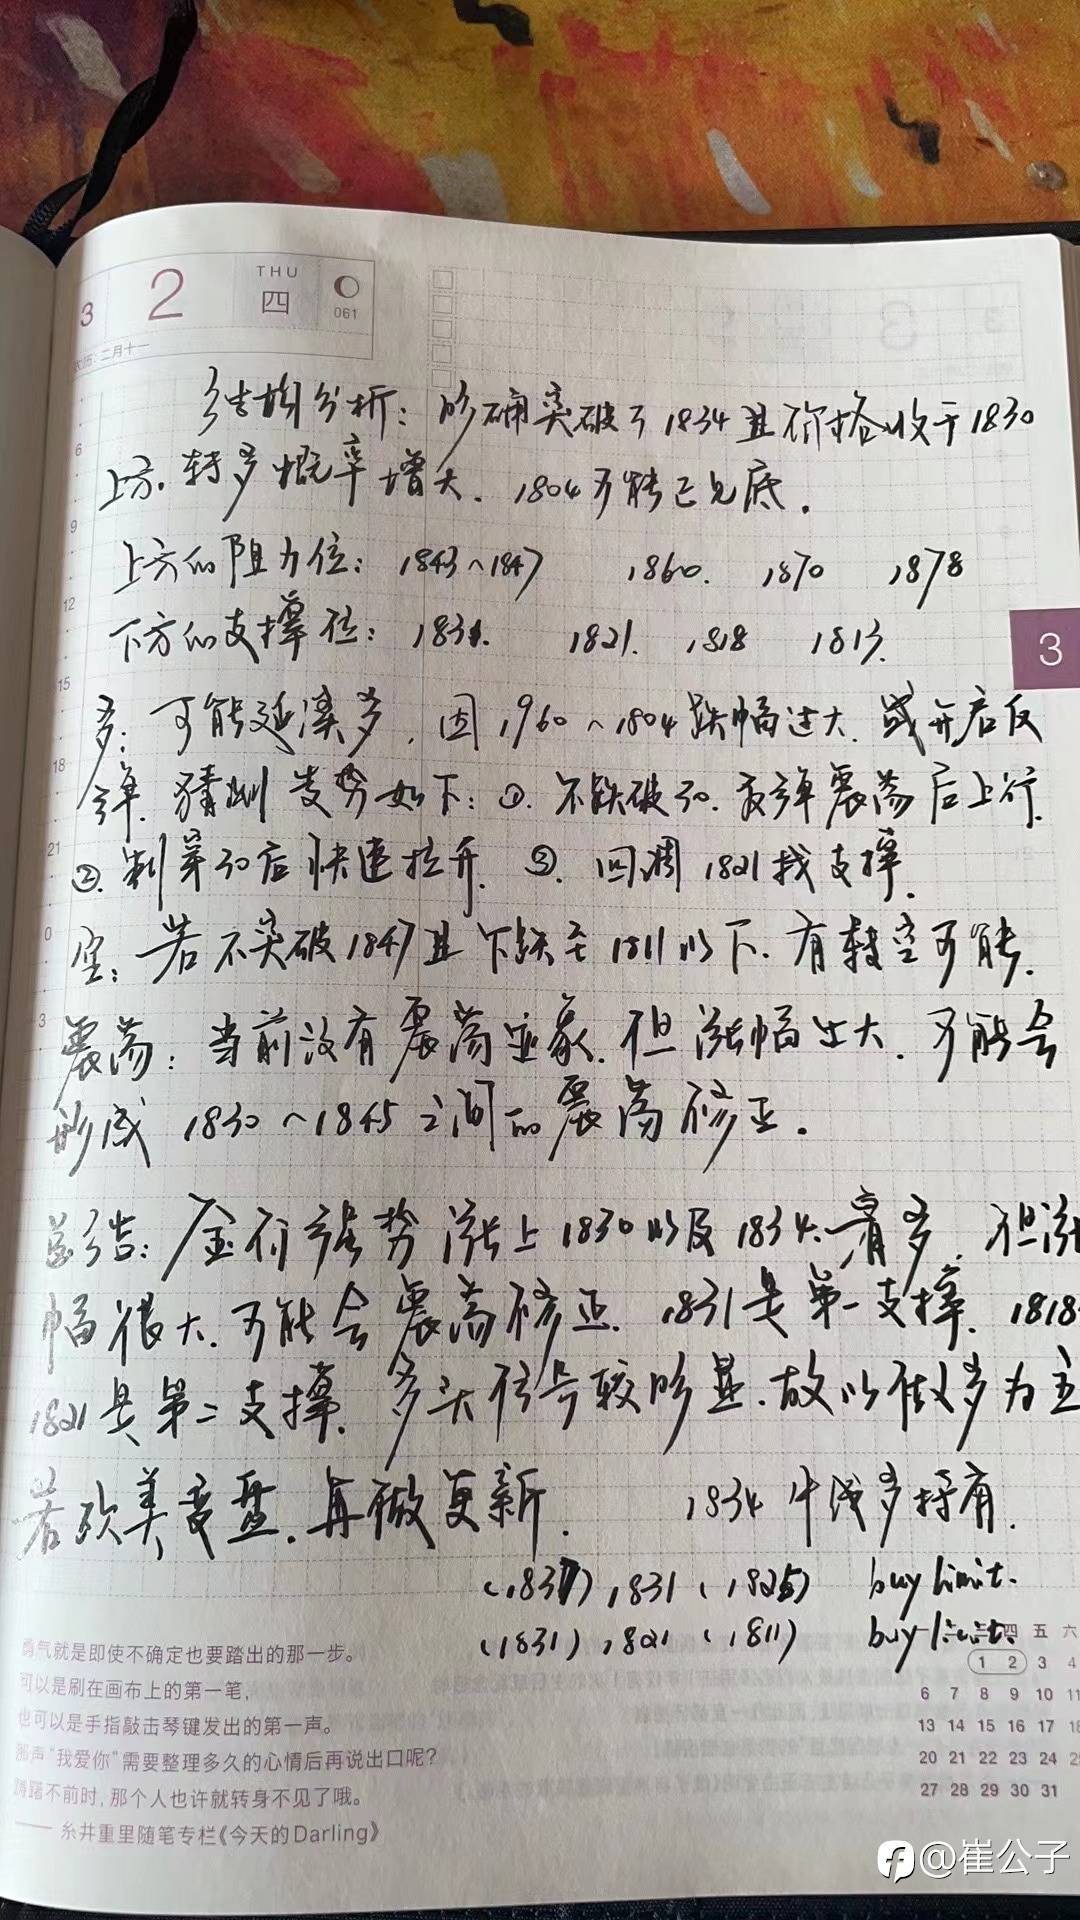 3 2 THU 四 061
农历:二月十一
结构分析：明确突破了1834且价格收于1830
上方. 转多概率增大. 1804可能已见底.
上方的阻力位：1843~1847 1860. 1870 1878
下方的支撑位：1831. 1821. 1818 1813.
多：可能延续多. 因1960~1804跌幅过大. 或开启反
弹. 猜测走势如下：①. 不跌破30. 反弹震荡后上行.
②. 刺穿30后快速拉升. ③. 回调1821找支撑.
空：若不突破1847且下跌至1811以下. 有转空可能.
震荡：当前没有震荡迹象. 但涨幅过大. 可能会
形成1830~1845之间的震荡修正.
总结：金价强势涨上1830以及1834.看多. 但涨
幅很大.可能会震荡修正. 1831是第一支撑. 1818-
1821是第二支撑. 多头信号较明显.故以做多为主
若欧美变盘.再做更新. 1834中线多持有.
(1837) 1831 (1825) buy limit.
(1831) 1821 (1811) buy limit.
勇气就是即使不确定也要踏出的那一步。
可以是刷在画布上的第一笔，
也可以是手指敲击琴键发出的第一声。
那声“我爱你”需要整理多久的心情后再说出口呢？
踌躇不前时，那个人也许就转身不见了哦。
—— 糸井重里随笔专栏《今天的Darling》
四 五 六
1 2 3 4
6 7 8 9 10 11
13 14 15 16 17 18
20 21 22 23 24 25
27 28 29 30 31
6
9
12
15
18
21
0
3
3
@崔公子